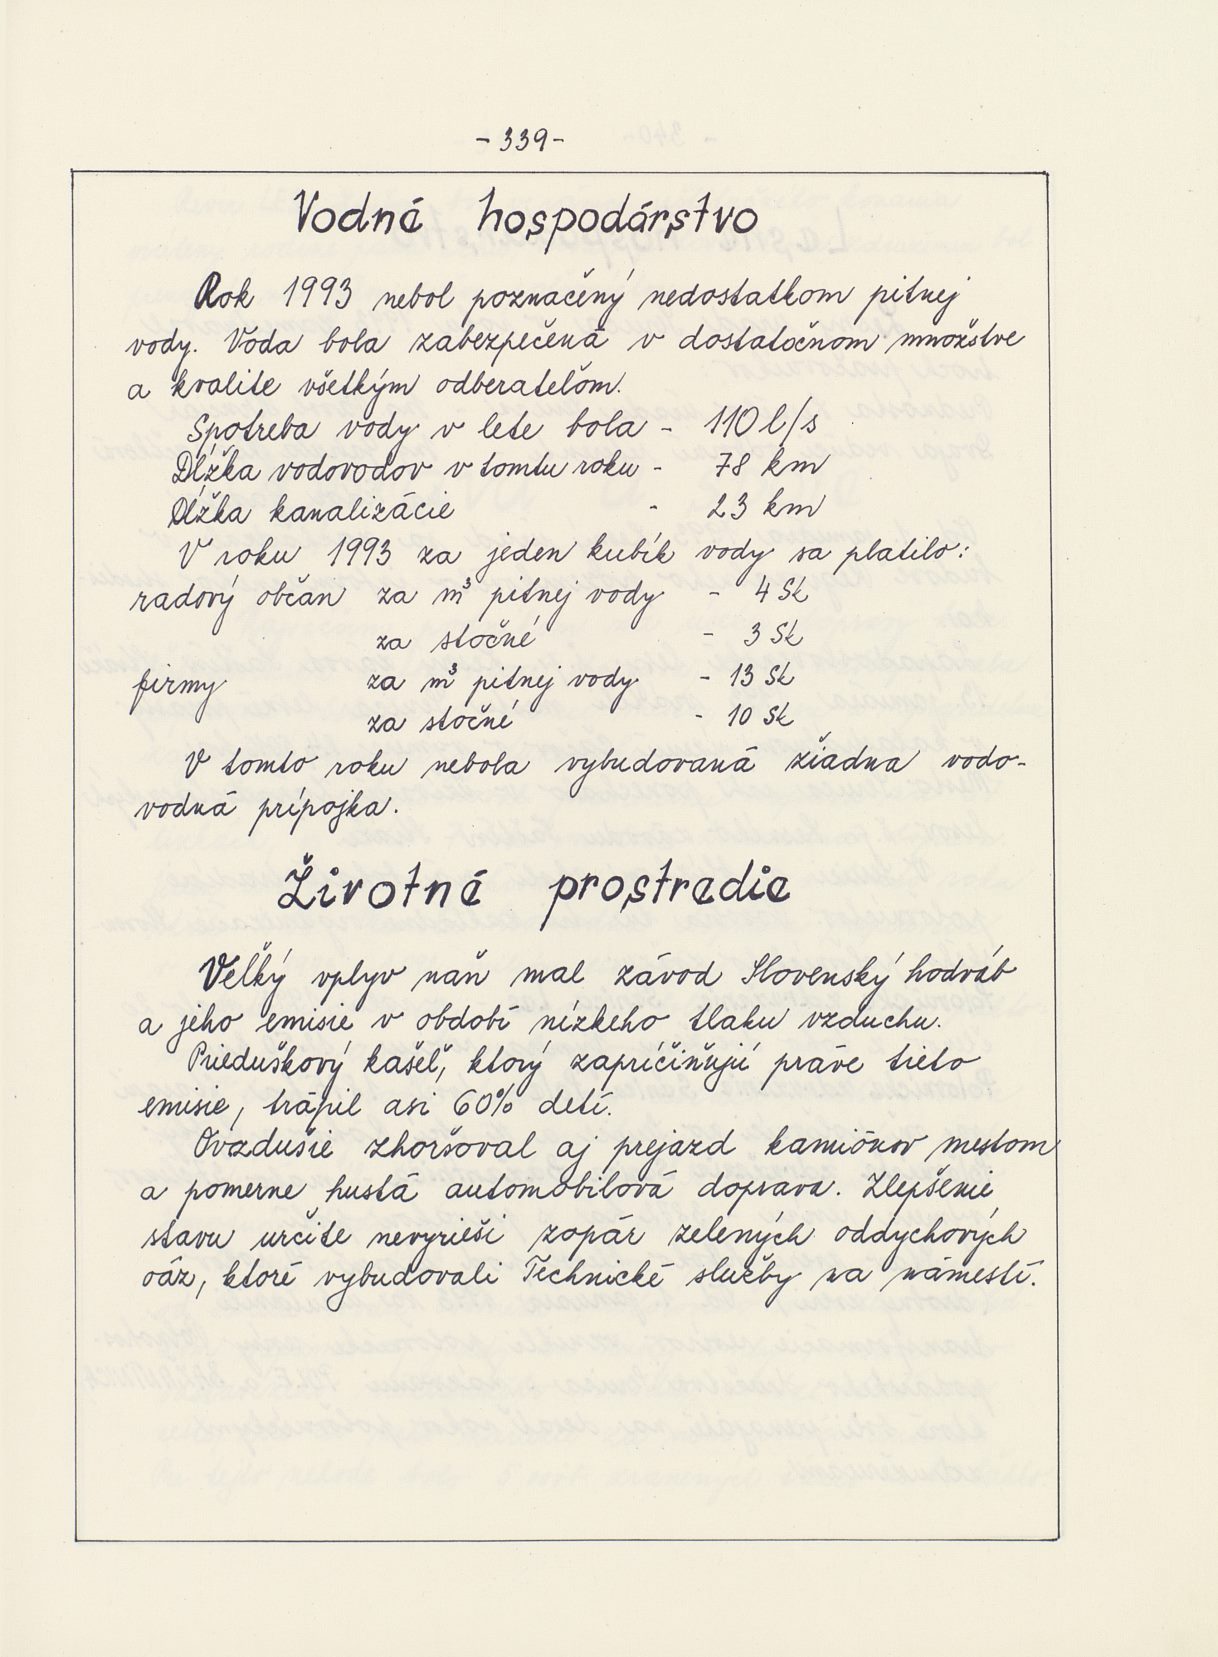 - 339 -
Vodné hospodárstvo
Rok 1993 nebol poznačený nedostatkom pitnej
vody. Voda bola zabezpečená v dostatočnom množstve
a kvalite všetkým odberateľom.
Spotreba vody v lete bola - 110 l/s
Dĺžka vodovodov v tomtu roku - 78 km
Dĺžka kanalizácie - 23 km
V roku 1993 za jeden kubík vody sa platilo:
radový občan za m³ pitnej vody - 4 Sk
za stočné - 3 Sk
firmy za m³ pitnej vody - 13 Sk
za stočné - 10 Sk
V tomto roku nebola vybudovaná žiadna vodo-
vodná prípojka.
Životné prostredie
Veľký vplyv naň mal závod Slovenský hodváb
a jeho emisie v období nízkeho tlaku vzduchu.
Prieduškový kašeľ, ktorý zapríčiňujú práve tieto
emisie, trápil asi 60% detí.
Ovzdušie zhoršoval aj prejazd kamiónov mestom
a pomerne hustá automobilová doprava. Zlepšenie
stavu určite nevyrieši zopár zelených oddychových
oáz, ktoré vybudovali Technické služby na námestí.